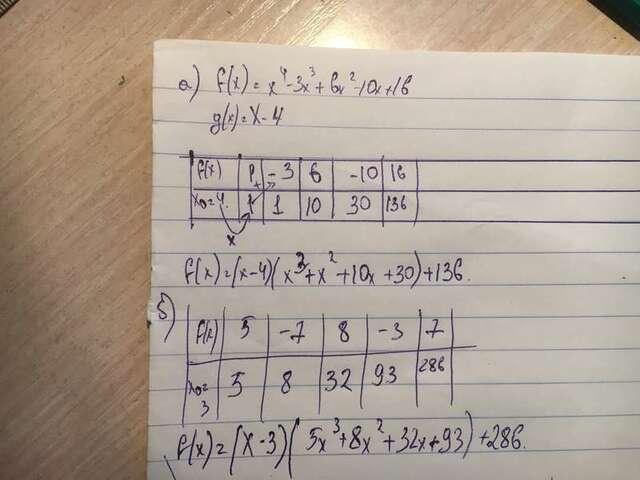 а) f(x) = x⁴-3x³+6x²-10x+16
g(x) = x-4
f(x) 1 -3 6 -10 16
x₀=4 1 1 10 30 136
x +
f(x) = (x-4)(x³+x²+10x+30)+136.
б)
f(x) 5 -7 8 -3 7
x₀=3 5 8 32 93 286
f(x) = (x-3)(5x³+8x²+32x+93)+286.